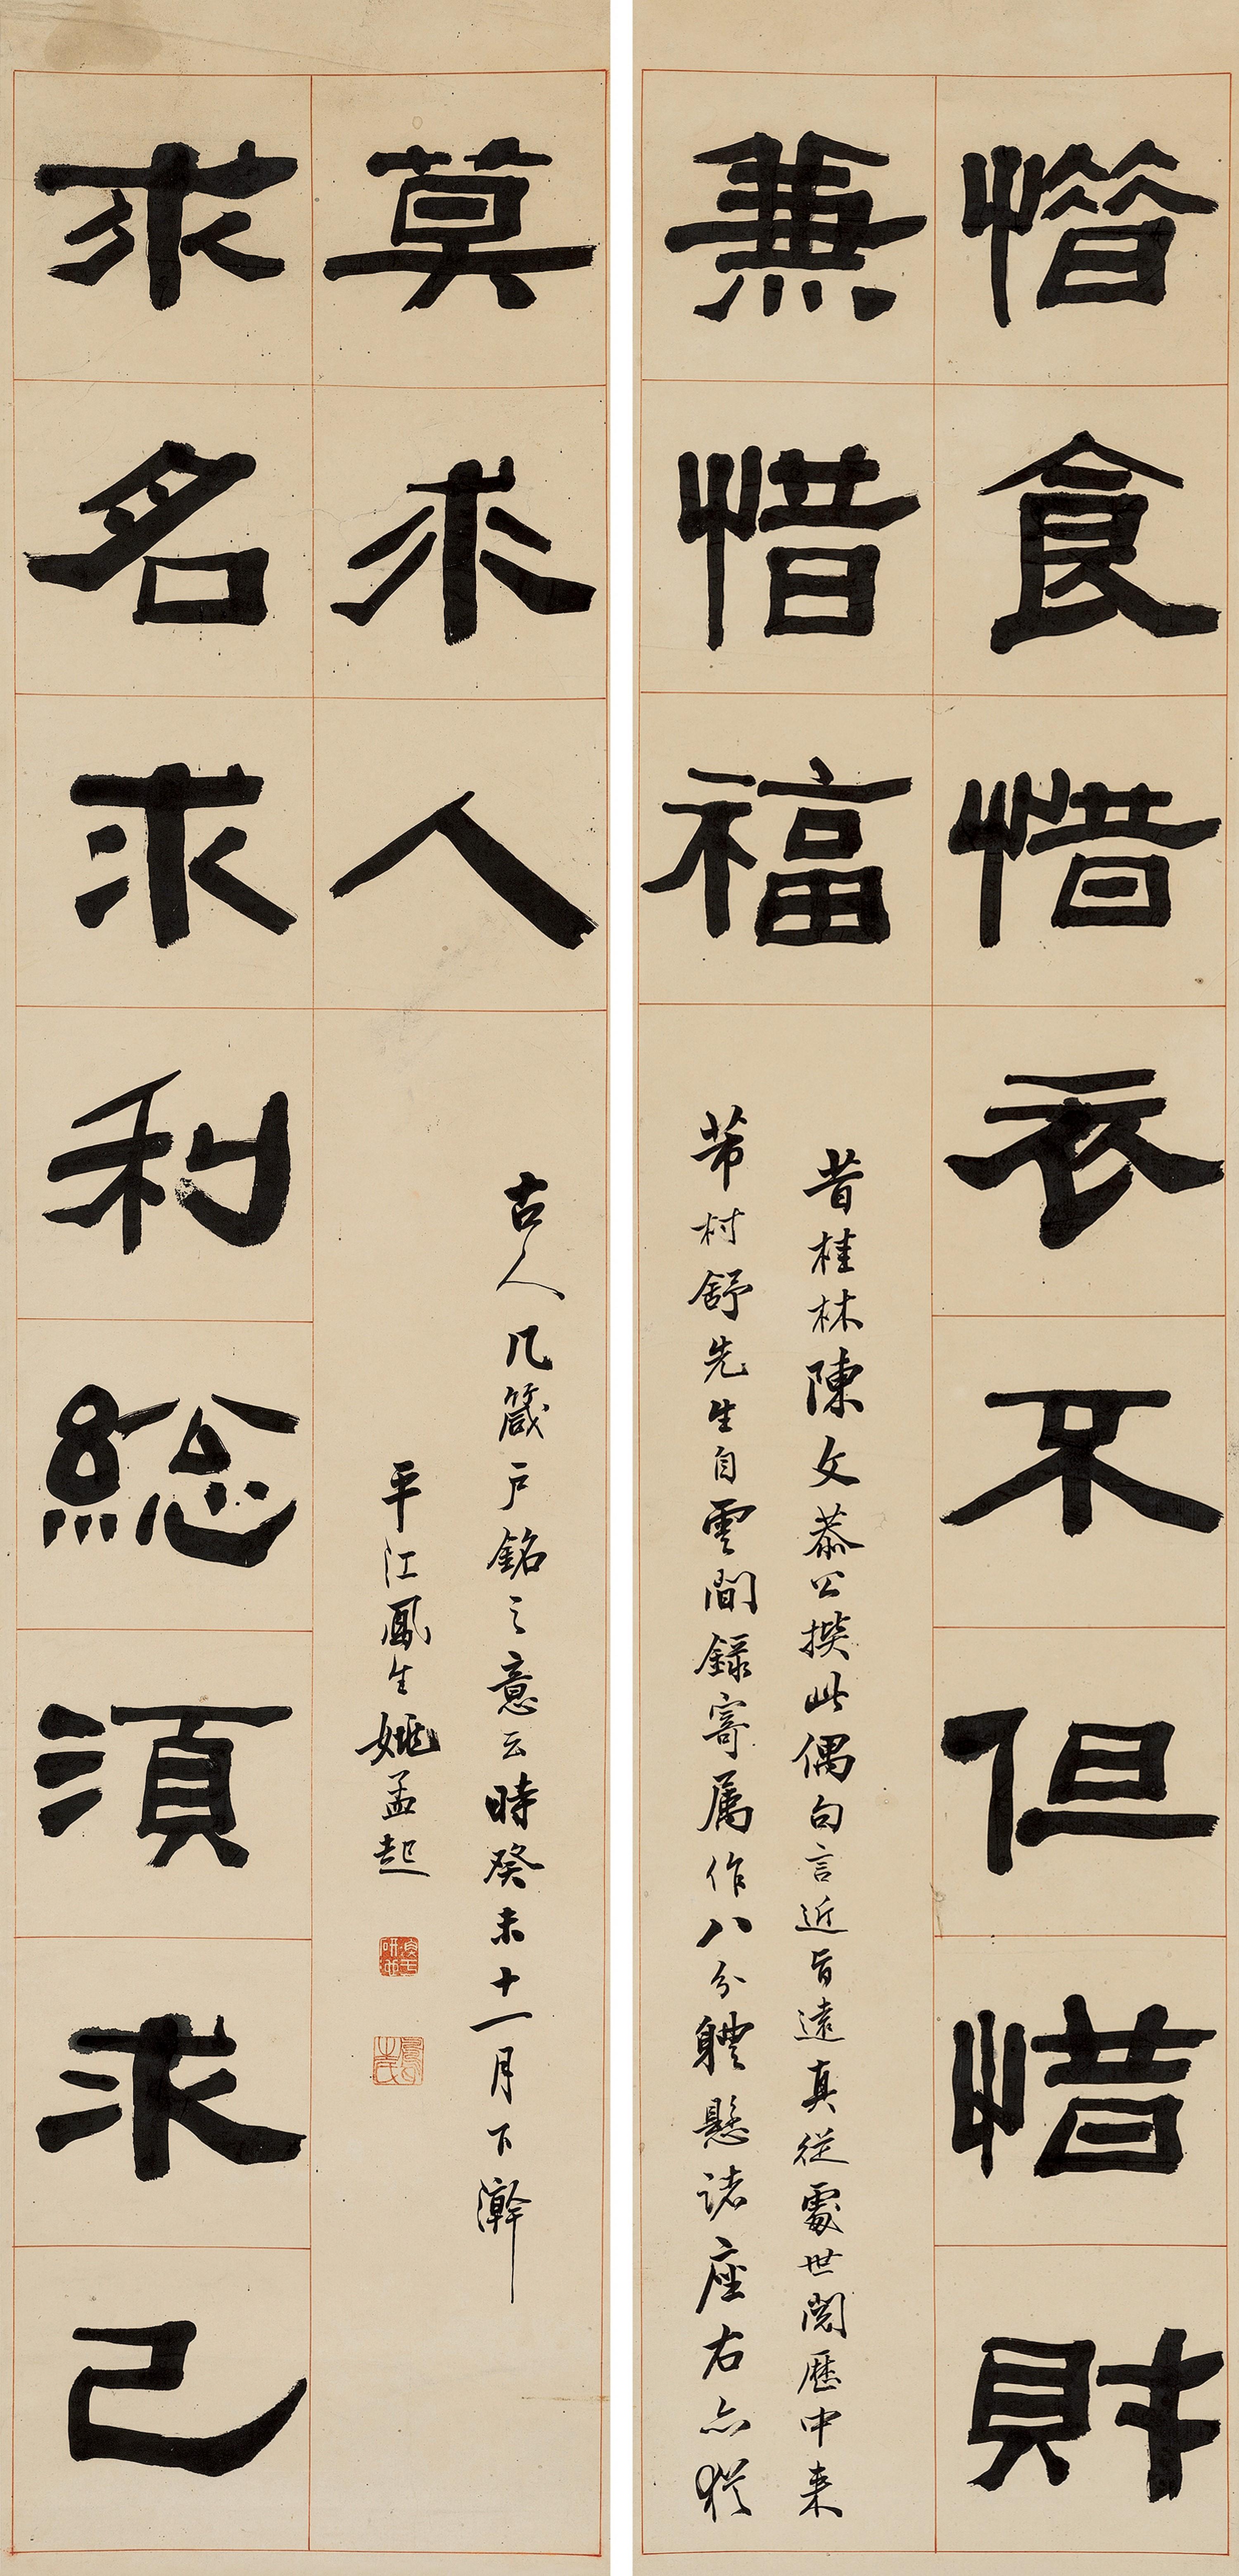 惜食惜衣不但惜財
兼惜福
昔桂林陳文恭公撰此偶句言近旨遠真從處世閱歷中来
芾村舒先生自雲間錄寄属作八分體懸諸座右亦猶
求名求利總須求己
莫求人
古人几箴户銘之意云時癸未十一月下澣
平江鳳生姚孟起